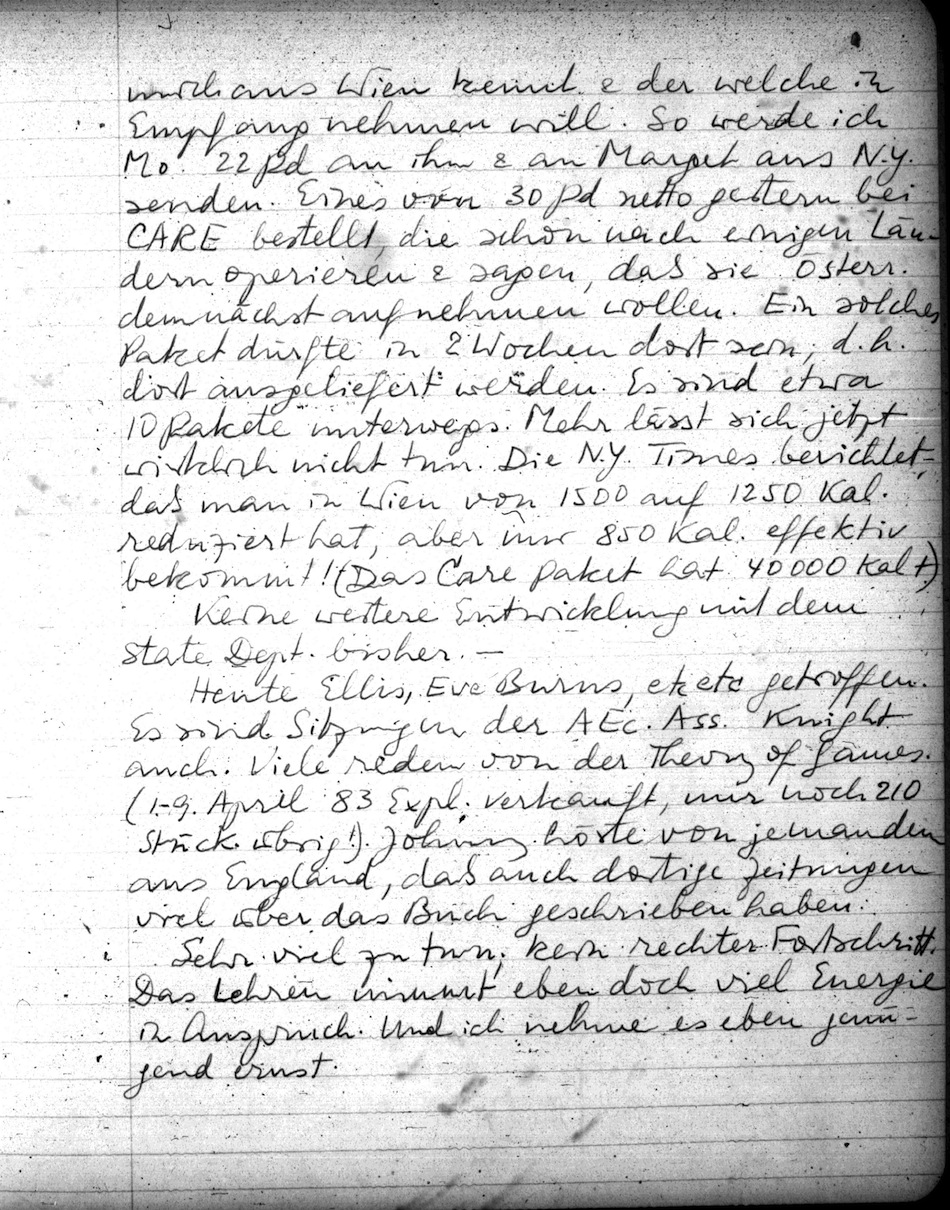 mich aus Wien kennt & der welche in
Empfang nehmen will. So werde ich
Mo. 22 Pd an ihn & an Margit aus N.Y.
senden. Eines von 30 Pd netto gestern bei
CARE bestellt, die schon nach einigen Län-
dern operieren & sagen, daß sie Österr.
demnächst aufnehmen wollen. Ein solches
Paket dürfte in 2 Wochen dort sein, d.h.
dort ausgeliefert werden. Es sind etwa
10 Pakete unterwegs. Mehr lässt sich jetzt
wirklich nicht tun. Die N.Y. Times berichtet,
daß man in Wien von 1500 auf 1250 Kal.
reduziert hat, aber nur 850 Kal. effektiv
bekommt! (Das Care Paket hat 40000 Kal!)
Keine weitere Entwicklung mit dem
State Dept. bisher. —
Heute Ellis, Eve Burns, etc etc getroffen.
Es sind Sitzungen der A Ec. Ass. Knight
auch. Viele reden von der Theory of Games.
(1-9. April 83 Expl. verkauft, nur noch 210
Stück übrig!). Johnny hörte von jemanden
aus England, daß auch dortige Zeitungen
viel über das Buch geschrieben haben.
Sehr viel zu tun; kein rechter Fortschritt.
Das Lehren nimmt eben doch viel Energie
in Anspruch. Und ich nehme es eben genü-
gend ernst.